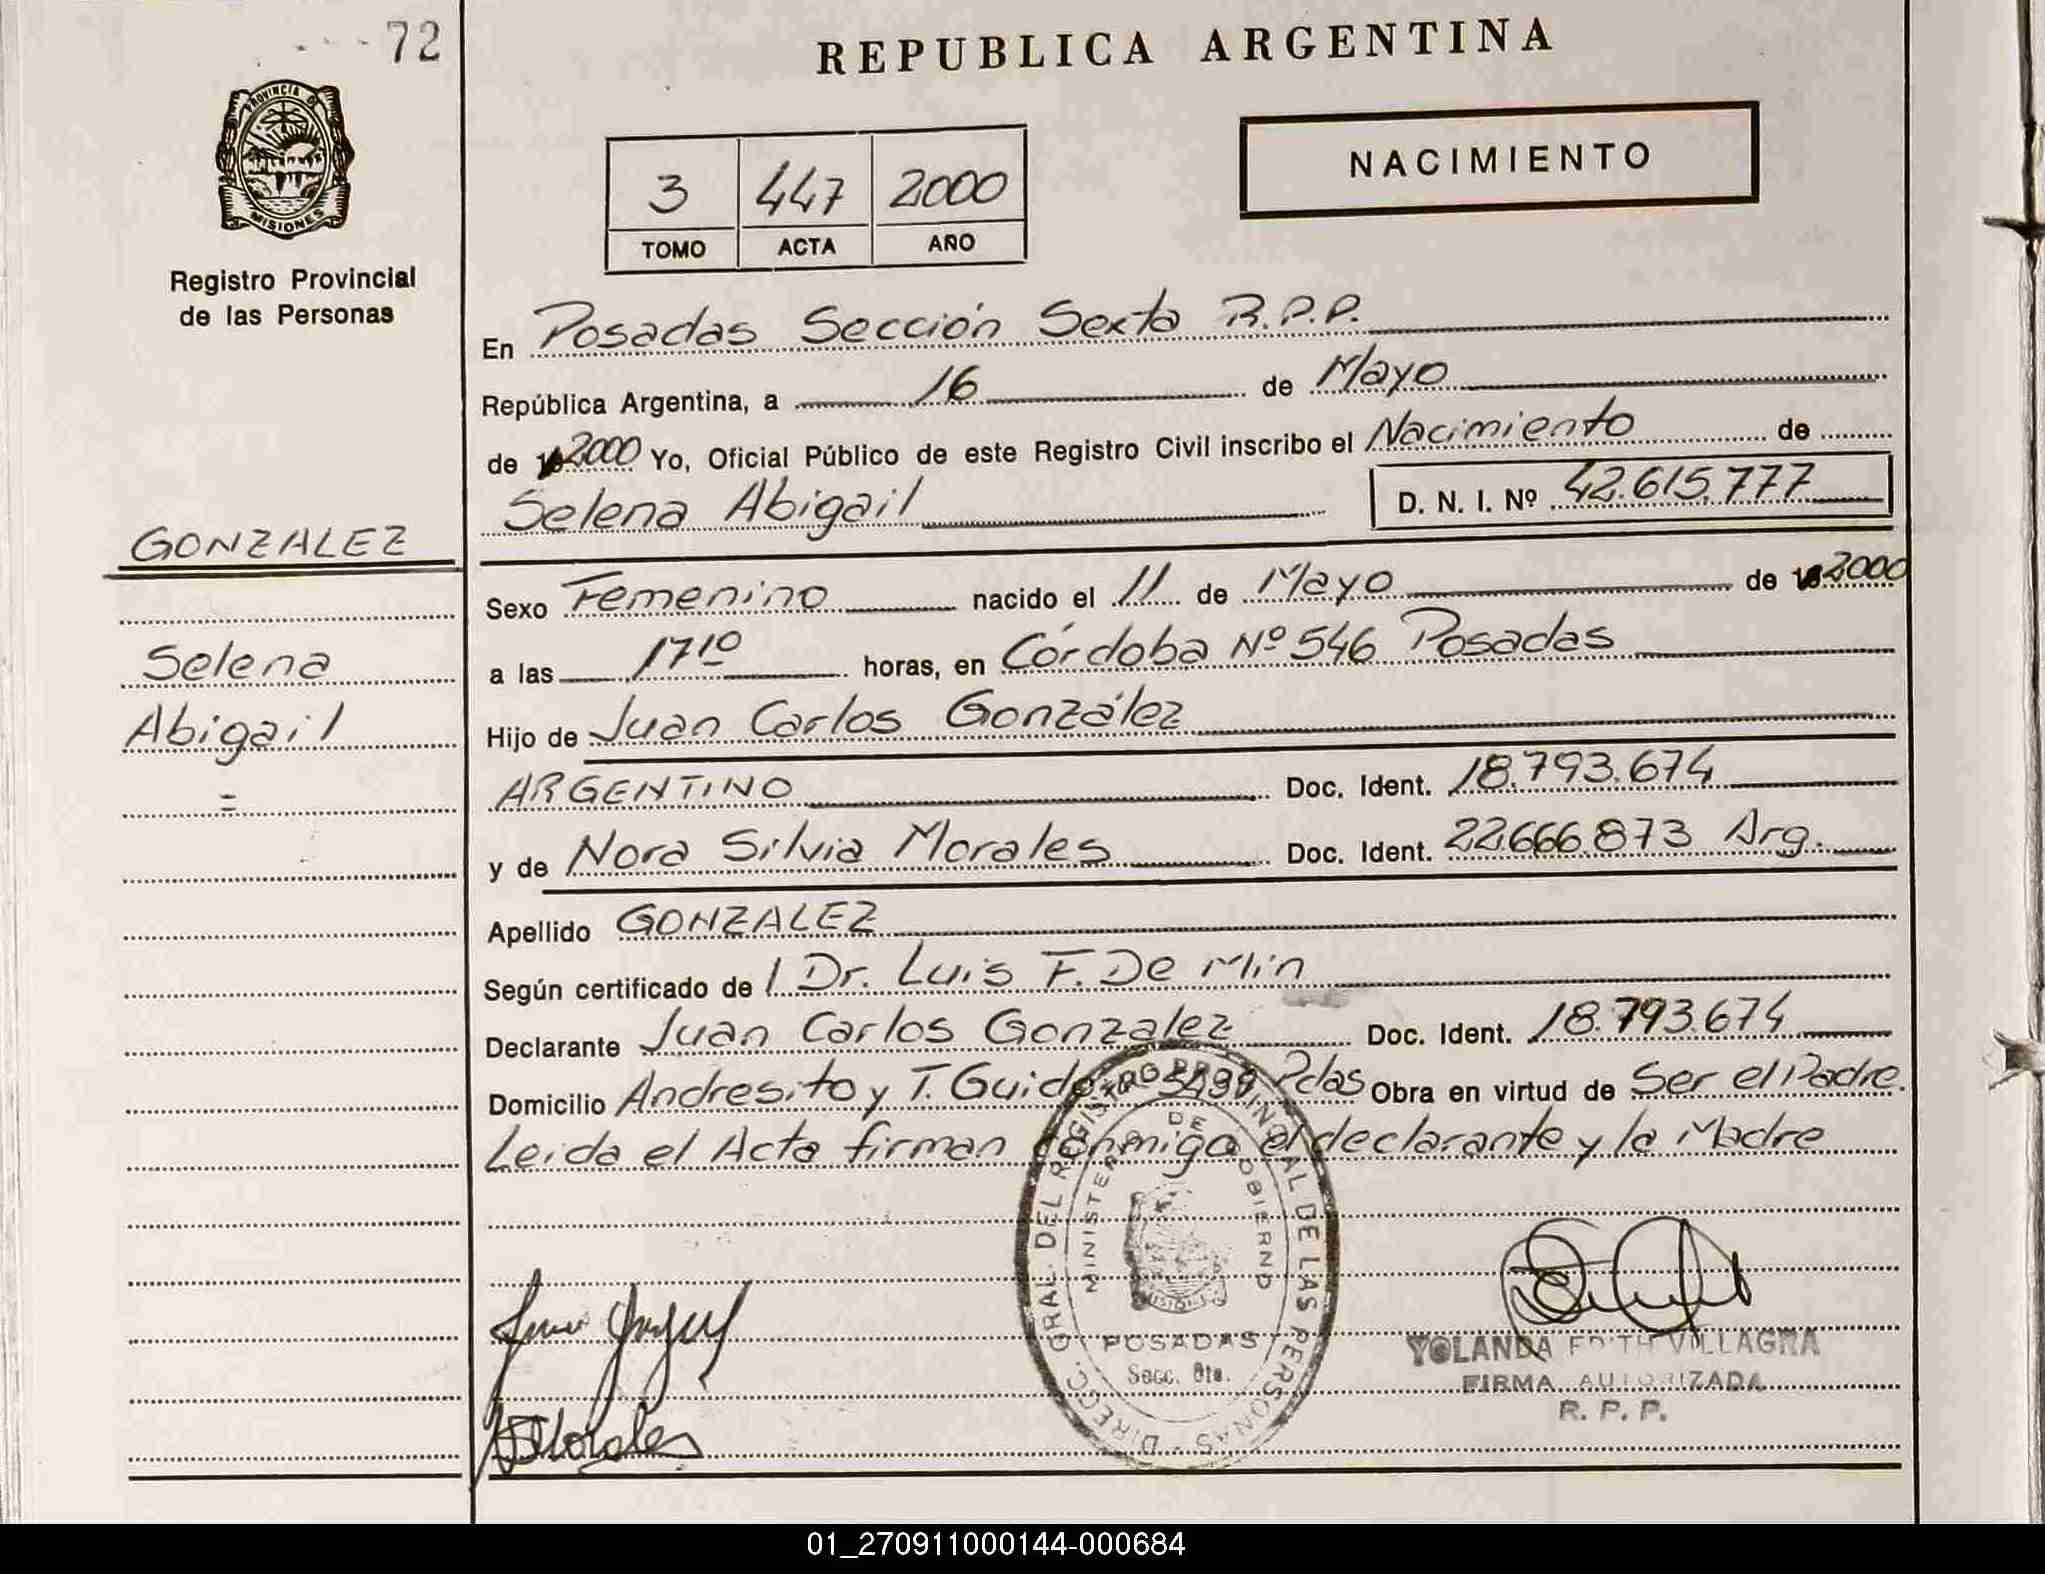 72
REPUBLICA ARGENTINA
PROVINCIA D
MISIONES
3 447 2000
TOMO ACTA AÑO
NACIMIENTO
Registro Provincial
de las Personas
En Posadas Sección Sexta R.P.P.
República Argentina, a 16 de Mayo
de 2000 Yo, Oficial Público de este Registro Civil inscribo el Nacimiento de
Selena Abigail D. N. I. Nº 42.615.777
GONZALEZ
Sexo Femenino nacido el 11 de Mayo de 2000
Selena
a las 17 10 horas, en Córdoba Nº 546 Posadas
Abigail
=
Hijo de Juan Carlos González
ARGENTINO Doc. Ident. 18.793.674
y de Nora Silvia Morales Doc. Ident. 22.666.873 Arg.
Apellido GONZALEZ
Según certificado de l Dr. Luis F. De Min
Declarante Juan Carlos Gonzalez Doc. Ident. 18.793.674
Domicilio Andresito y T. Guido Pdas Obra en virtud de Ser el Padre.
Leida el Acta firman conmigo el declarante y la Madre
DIRECC. GRAL. DEL REGISTRO PROVINCIAL DE LAS PERSONAS
MINISTERIO DE GOBIERNO
POSADAS
Secc. 6ta.
YOLANDA EDITH VILLAGRA
FIRMA AUTORIZADA
R. P. P.
Morales
01_270911000144-000684